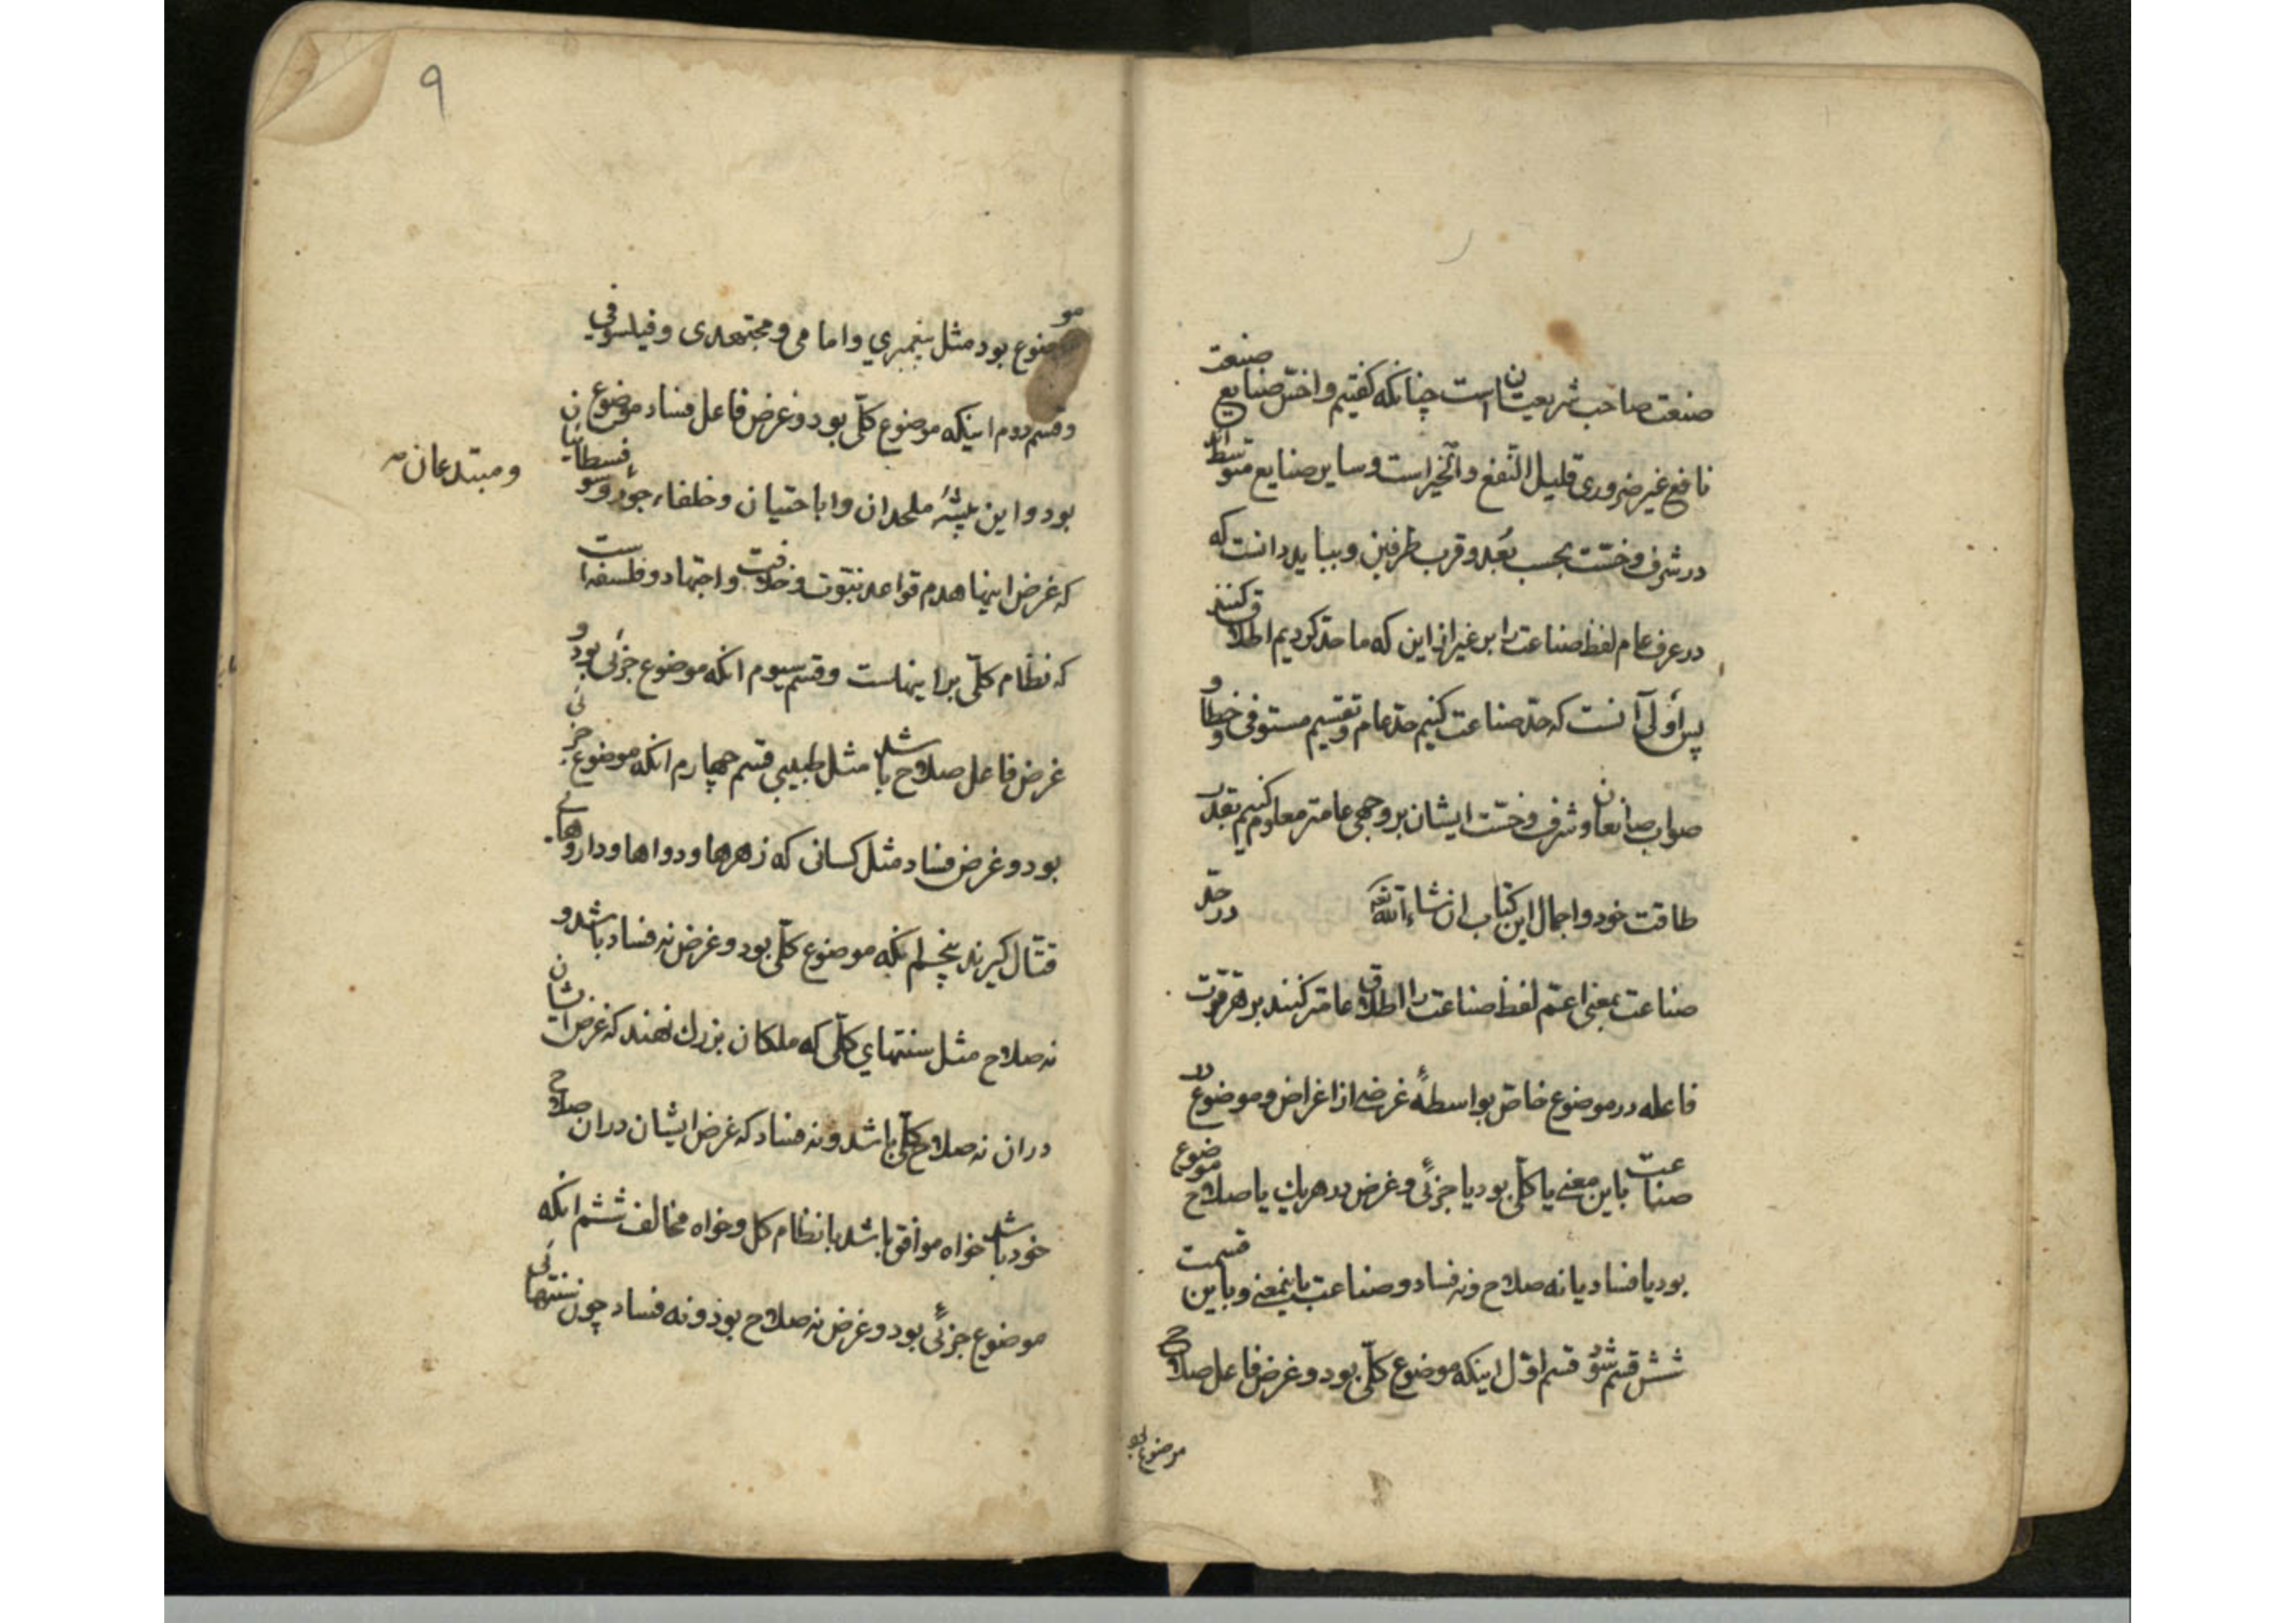 صنعت صاحب شریعتان است چنانکه کفتیم و اخسّ صنایع صنعت
نافع غیر ضروری قلیل النّفع و الخیر است و سایر صنایع متوسّط اند
در شرف و خسّت بحسب بُعد و قرب طرفین و بباید دانست که
در عرف عام لفظ صناعت را بر غیر از این که ما حدّ کردیم اطلاق کنند
پس اَولی آنست که حدّ صناعت کنیم حدّ عام و تقسیم مستوفی و خطا و
صواب صانعان و شرف و خسّت ایشان بر وجهی عامتر معلوم کنیم بقدر
طاقت خود و اجمال این کتاب ان شاء الله تعالی در حدّ
صناعت بمعنی اعمّ لفظ صناعت را اطلاق عامتر کنند بر هر قوّت
فاعله در موضوع خاصّ بواسطهٔ غرضی از اغراض و موضوع در
صناعت باین معنی یا کلّی بود یا جزئی و غرض در هر یک یا صلاح موضوع
بود یا فساد یا نه صلاح و نه فساد و صناعت باینمعنی و باین قسمت
شش قسم شود قسم اوّل اینکه موضوع کلّی بود و غرض فاعل صلاح
موضوع بو
۹
موضوع بود مثل پیغمبری و امامی و مجتهدی و فیلسوفی
و قسم دوم اینکه موضوع کلّی بود و غرض فاعل فساد موضوع
بود و این پیشهٔ ملحدان و اباحتیان و خلفاء جور و سوفسطائیان
و مبتدعان
که غرض اینها هدم قواعد نبوّت و خلافت و اجتهاد و فلسفه است
که نظام کلّی بر اینهاست و قسم سیوم انکه موضوع جزئی بود و
غرض فاعل صلاح باشد مثل طبیبی قسم چهارم انکه موضوع جزئی
بود و غرض فساد مثل کسانی که زهرها و دواها و داروهای
قتّال کیرند پنجم انکه موضوع کلّی بود و غرض نه فساد باشد و
نه صلاح مثل سنتهای کلّی که ملکان بزرك نهند که غرض ایشان
دران نه صلاح کلّی باشد و نه فساد که غرض ایشان دران صلاح
خود باشد خواه موافق باشد با نظام کل و خواه مخالف ششم انکه
موضوع جزئی بود و غرض نه صلاح بود و نه فساد چون سنتهائی